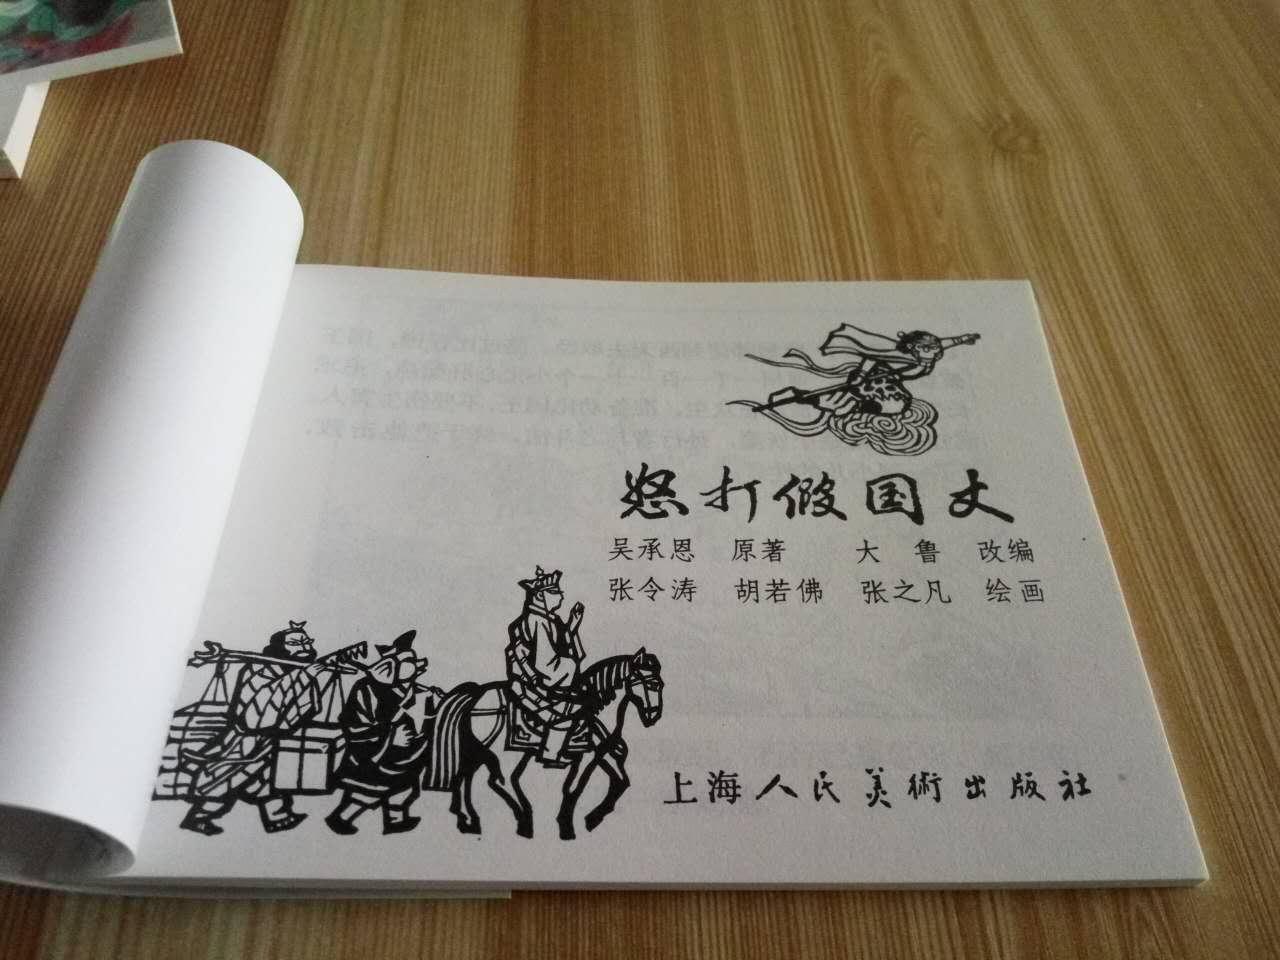 怒打假国丈
吴承恩 原著 大鲁 改编
张令涛 胡若佛 张之凡 绘画
上海人民美術出版社